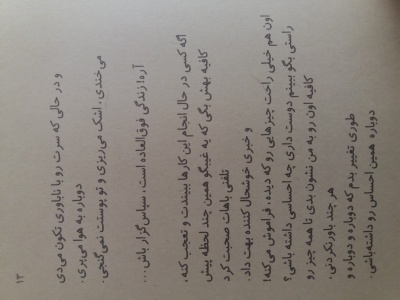 و در حالی که سرت رو با ناباوری تکون می‌دی
می‌خندی. اشک می‌ریزی و تو پوستت نمی‌گنجی.
دوباره به هوا می‌پری.
آره! زندگی فوق‌العاده است. سپاس‌گزار باش...
اگه کسی در حال انجام این کارها ببیندت و تعجب کنه،
کافیه بهش بگی که یه غیبگو همین چند لحظه پیش
تلفنی باهات صحبت کرد
و خبری خوشحال کننده بهت داد.
اون هم خیلی راحت چیزهایی رو که دیده، فراموش می‌کنه!
راستی بگو ببینم دوست داری چه احساسی داشته باشی؟
کافیه اون رو به من نشون بدی تا همه چیز رو
هر چند باورنکردنی،
طوری تغییر بدم که دوباره و دوباره و
دوباره همین احساس رو داشته‌باشی.
۱۳